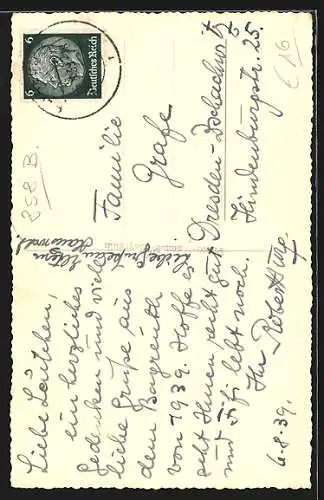 Liebe Leutchen,
ein herzliches
Gedenken und viele
liebe Grüße aus
dem Bayreuth
von 1939. Hoffe es
geht Ihnen recht gut
und Fifi lebt noch.
Ihr Robert
6.8.39.
Familie
Grafe
Dresden-
Hindenburgstr. 25.
Deutsches Reich
6
6
858 B.
€ 16